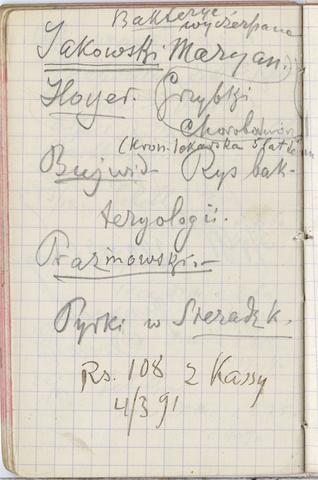 Bakterye
wyczerpane
Jakowski Maryan.)
Hoyer. Grzybki
chorobotwór
(Kron. lekarska 5 lat temu
Bujwid - Rys bak-
teryologii.
Prażmowski. -
Pyrki w Sieradzk.
Rs. 108 z Kassy
4/3 91